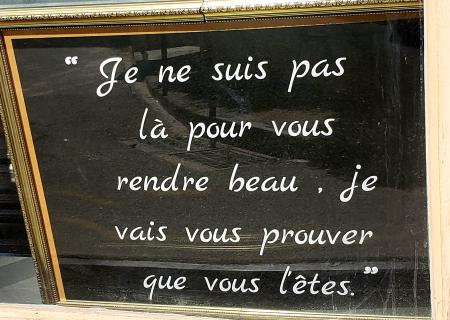 “ Je ne suis pas
là pour vous
rendre beau , je
vais vous prouver
que vous l'êtes.”